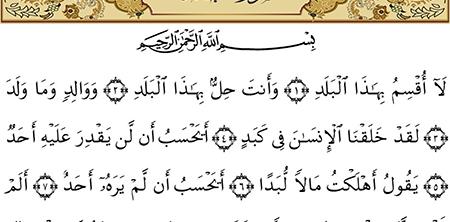 بِسْمِ اللَّهِ الرَّحْمَٰنِ الرَّحِيمِ
لَآ أُقْسِمُ بِهَٰذَا ٱلْبَلَدِ ۝١ وَأَنتَ حِلٌّۢ بِهَٰذَا ٱلْبَلَدِ ۝٢ وَوَالِدٍ وَمَا وَلَدَ
۝٣ لَقَدْ خَلَقْنَا ٱلْإِنسَٰنَ فِى كَبَدٍ ۝٤ أَيَحْسَبُ أَن لَّن يَقْدِرَ عَلَيْهِ أَحَدٌ
۝٥ يَقُولُ أَهْلَكْتُ مَالًا لُّبَدًا ۝٦ أَيَحْسَبُ أَن لَّمْ يَرَهُۥٓ أَحَدٌ ۝٧ أَلَمْ